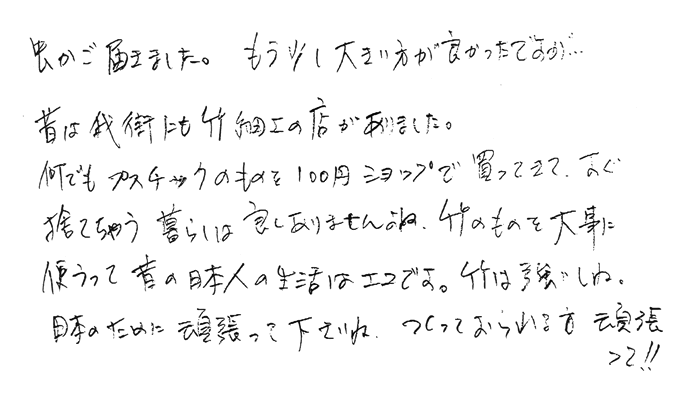 虫かご届きました。もう少し大きい方が良かったですが…
昔は我街にも竹細工の店がありました。
何でもプラスチックのものを100円ショップで買ってきて、すぐ
捨てちゃう暮らしは良しありませんよね、竹のものを大事に
使うって昔の日本人の生活はエコです。竹は強いしね。
日本のために頑張って下さいね、つくっておられる方頑張
って!!